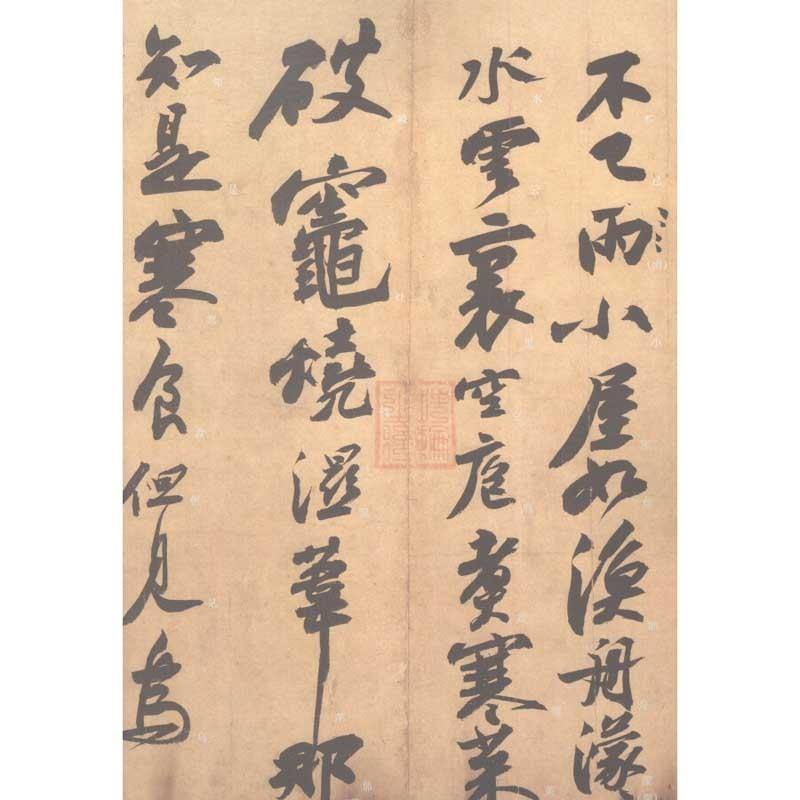 不已雨小屋如漁舟濛〻
水雲裏空庖煮寒菜
破竈燒濕葦那
知是寒食但見烏